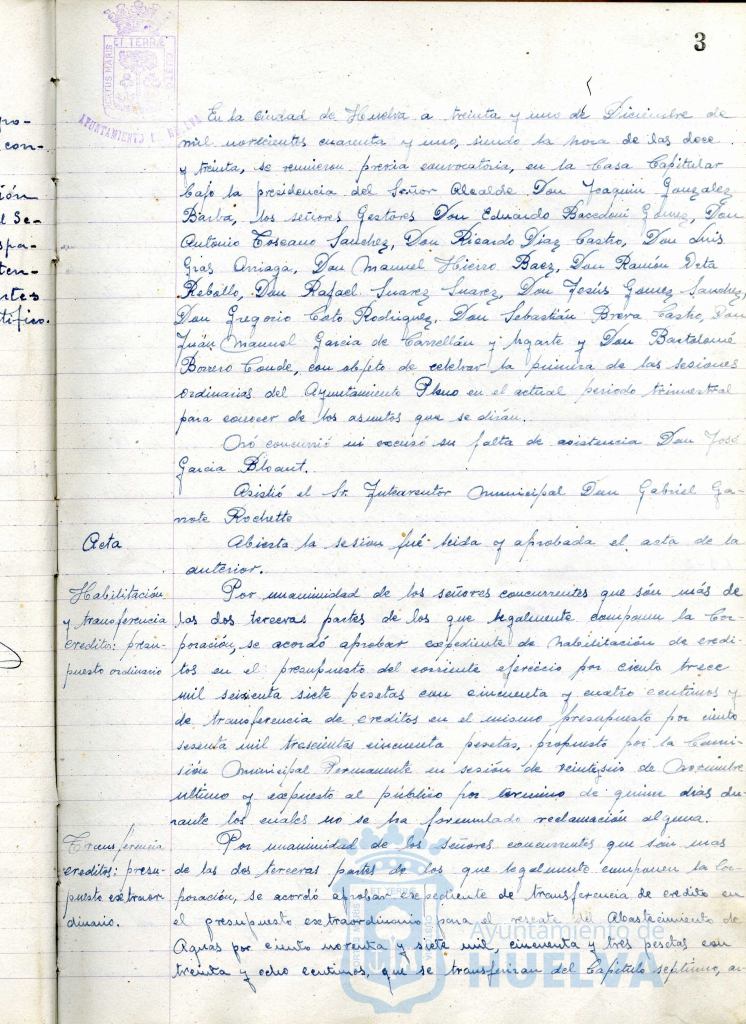 3
PORTUS MARIS ET TERRÆ CUSTO
AYUNTAMIENTO HUELVA
pro-
con-
ión
l Se-
spa-
ten-
ntes
tífico.
En la Ciudad de Huelva a treinta y uno de Diciembre de
mil novecientos cuarenta y uno, siendo la hora de las doce
y treinta, se reunieron previa convocatoria, en la Casa Capitular
bajo la presidencia del Señor Alcalde Don Joaquin Gonzalez
Barba, los señores Gestores Don Eduardo Gomez, Don
Antonio Toscano Sanchez, Don Ricardo Diaz Castro, Don Luis
Gras Arriaga, Don Manuel Hierro Baez, Don Ramón Reta
Rebollo, Don Rafael Suarez Suarez, Don Jesús Gomez Sanchez,
Don Gregorio Coto Rodriguez, Don Sebastián Brera Castro, Don
Juán Manuel Garcia de Carrellán y Ugarte y Don Bartolomé
Borrero Conde, con objeto de celebrar la primera de las sesiones
ordinarias del Ayuntamiento Pleno en el actual periodo trimestral
para conocer de los asuntos que se dirán.
Nó concurrió ni excusó su falta de asistencia Don José
Garcia
Asistió el Sr. Interventor Municipal Don Gabriel Ga-
rrote Rochette
Acta
Abierta la sesión fué leida y aprobada el acta de la
anterior.
Habilitación
y transferencia
credito: presu-
puesto ordinario
Por unanimidad de los señores concurrentes que són más de
las dos terceras partes de los que legalmente componen la Cor-
poración, se acordó aprobar expediente de habilitación de credi-
tos en el presupuesto del corriente ejercicio por ciento trece
mil seisienta siete pesetas con cincuenta y cuatro centimos y
de transferencia de creditos en el mismo presupuesto por ciento
sesenta mil trescientas cincuenta pesetas, propuesto por la Comi-
sión Municipal Permanente en sesión de veintiseis de Noviembre
último y expuesto al público por termino de quince dias du-
rante los cuales no se ha formulado reclamación alguna.
Transferencia
creditos: presu-
puesto extraor-
dinario.
Por unanimidad de los señores concurrentes que són mas
de las dos terceras partes de los que legalmente componen la Cor-
poración, se acordó aprobar expediente de transferencia de credito en
el presupuesto extraordinario para el rescate del Abastecimiento de
Aguas por ciento noventa y siete mil, cincuenta y tres pesetas con
treinta y ocho centimos, que se transferiran del Capitulo septimo, ar-
Ayuntamiento de
HUELVA